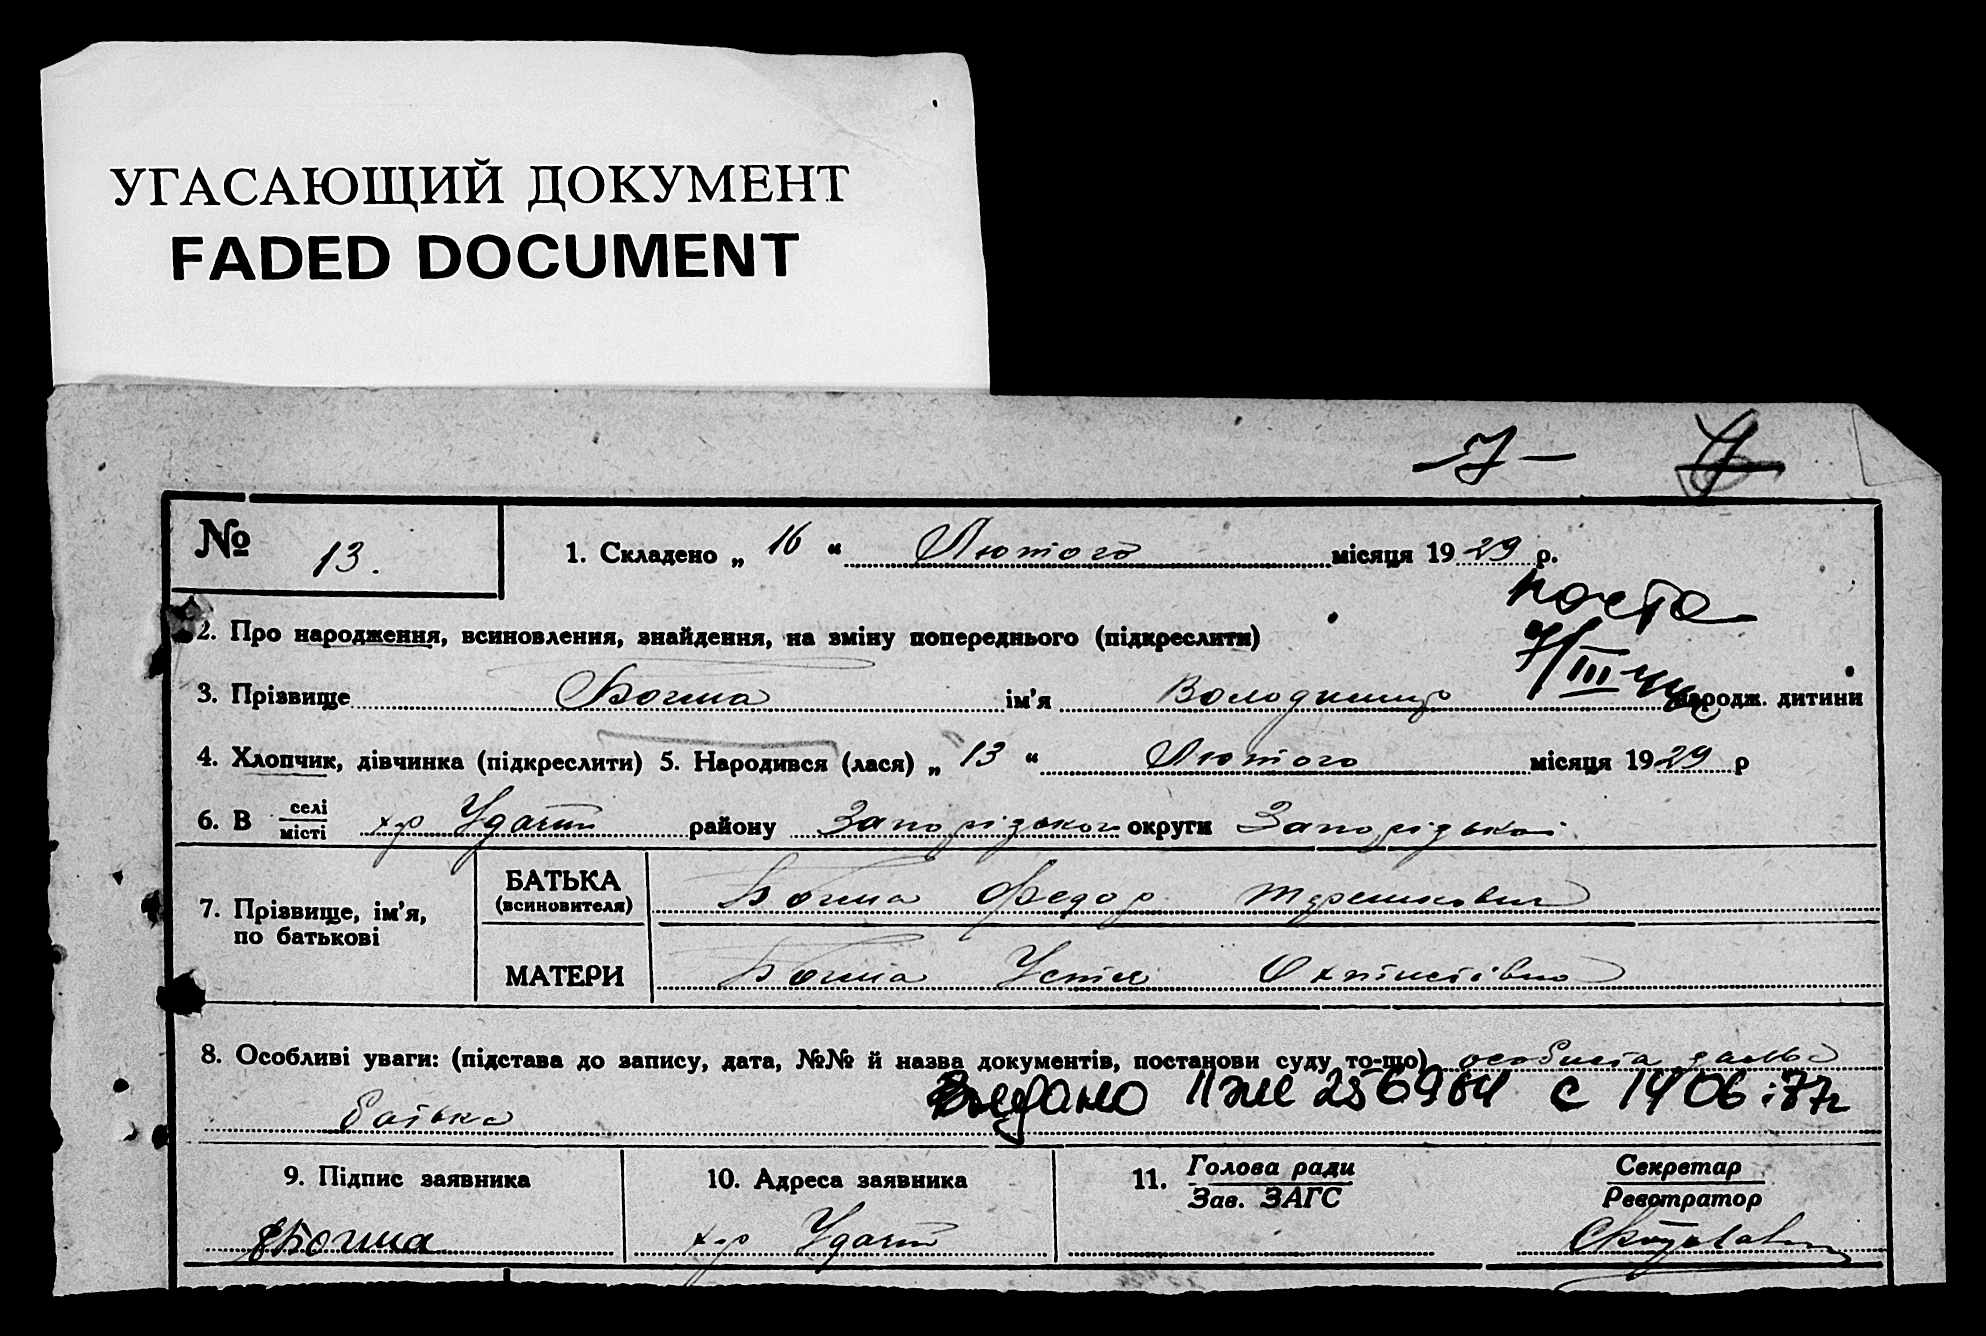 УГАСАЮЩИЙ ДОКУМЕНТ
FADED DOCUMENT
7
№ 13.
1. Складено „ 16 “ Лютого місяця 1929 р.
2. Про народження, всиновлення, знайдення, на зміну попереднього (підкреслити)
3. Прізвище ім’я Володимир народж. дитини
4. Хлопчик, дівчинка (підкреслити) 5. Народився (лася) „ 13 “ Лютого місяця 1929 р
6. В селі місті х-р Удачий району Запорізького округи Запорізької
7. Прізвище, ім’я, по батькові
БАТЬКА (всиновителя) Федор
МАТЕРИ Устя
8. Особливі уваги: (підстава до запису, дата, №№ й назва документів, постанови суду, то-що) особиста
батька
Видано с 14 06
9. Підпис заявника
10. Адреса заявника
11. Голова ради
Зав. ЗАГС
Секретар
Реєстратор
х-р Удачий